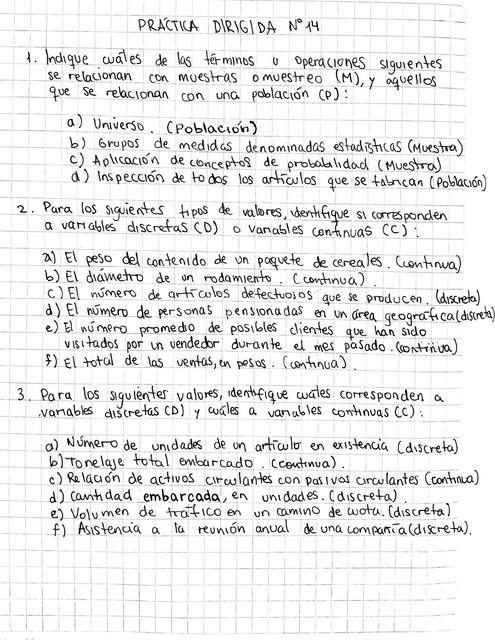 PRÁCTICA DIRIGIDA N° 14
1. Indique cuáles de las términos u operaciones siguientes
se relacionan con muestras o muestreo (M), y aquellos
que se relacionan con una población (P):
a) Universo. (Población)
b) Grupos de medidas denominadas estadísticas (Muestra)
c) Aplicación de conceptos de probabilidad (Muestra)
d) Inspección de todos los artículos que se fabrican (Población)
2. Para los siguientes tipos de valores, identifique si corresponden
a variables discretas (D) o variables continuas (C):
a) El peso del contenido de un paquete de cereales. (continua)
b) El diámetro de un rodamiento. (continua)
c) El número de artículos defectuosos que se producen. (discreta)
d) El número de personas pensionadas en un área geográfica (discreta)
e) El número promedio de posibles clientes que han sido
visitados por un vendedor durante el mes pasado. (continua)
f) El total de las ventas, en pesos. (continua)
3. Para los siguientes valores, identifique cuáles corresponden a
variables discretas (D) y cuáles a variables continuas (C):
a) Número de unidades de un artículo en existencia (discreta)
b) Tonelaje total embarcado. (continua).
c) Relación de activos circulantes con pasivos circulantes (continua)
d) cantidad embarcada, en unidades. (discreta)
e) Volumen de tráfico en un camino de cuota. (discreta)
f) Asistencia a la reunión anual de una compañía (discreta).